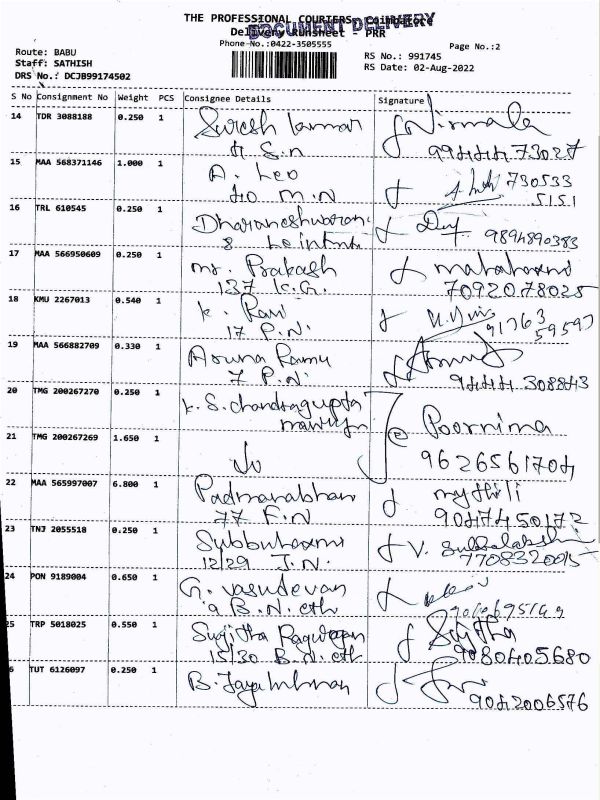 THE PROFESSIONAL COURIERS- Coimbatore
DOCUMENT DELIVERY
Delivery Runsheet - PRR
Phone-No.:0422-3505555
Page No.:2
Route: BABU
RS No.: 991745
Staff: SATHISH
RS Date: 02-Aug-2022
DRS No.: DCJB99174502
S No Consignment No Weight PCS Consignee Details Signature
14 TDR 3088188 0.250 1 Suresh kumar Nirmala
H S.n 99444 73027
15 MAA 568371146 1.000 1 A. Leo 730533
40 M.N 5151
16 TRL 610545 0.250 1 Dharaneshwaran
8 9894890383
17 MAA 566950609 0.250 1 mr. Prakash
137 K.G. 7092078025
18 KMU 2267013 0.540 1 K. Ravi 91763
17 P.N. 59597
19 MAA 566882709 0.330 1 Aruna Ramu
7 P.N. 9444 308843
20 TMG 200267270 0.250 1 K.S. chandragupta Poornima
21 TMG 200267269 1.650 1 9626561704
22 MAA 565997007 6.800 1 Padmanabhan mythili
77 F.N 9047450172
23 TNJ 2055518 0.250 1 Subbulaxmi V. Subbalakshmi
12/29 J.N. 770832095
24 PON 9189004 0.650 1 G. vasudevan
9 B.N. eth
25 TRP 5018025 0.550 1 Sujitha Sujitha
15/30 B.N. eth 9080405680
6 TUT 6126097 0.250 1 B.
9042006576